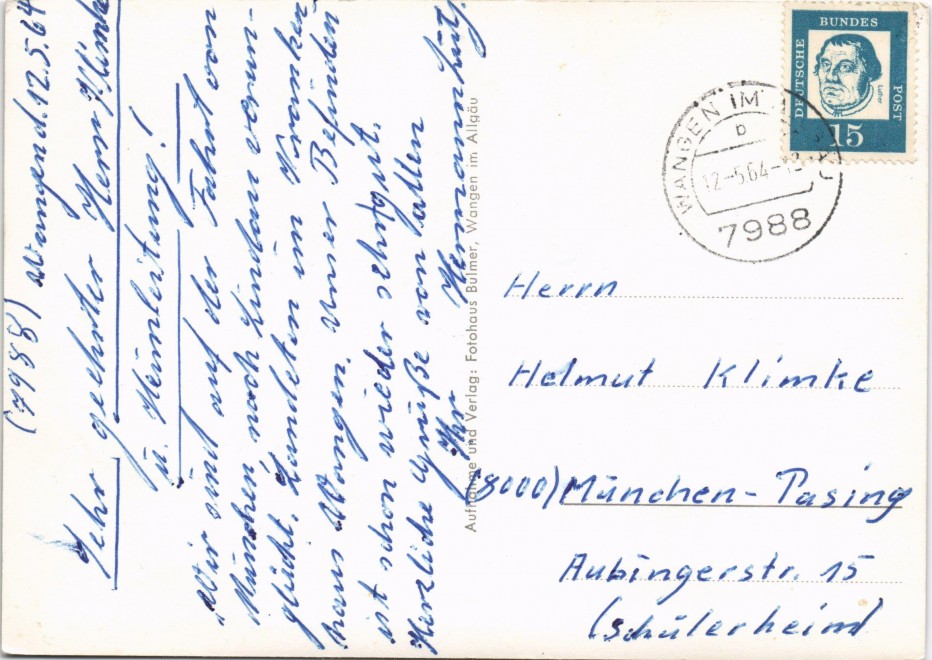 (7988) Wangen d. 12.5.64
Sehr geehrter Herr Klimke
u. Heimleitung!
Wir sind auf der Fahrt von
München nach Lindau verun-
glückt, landeten im Kranken-
haus Wangen. Unser Befinden
ist schon wieder sehr gut.
Herzliche Grüße von allen
Ihr Hermann
Aufnahme und Verlag: Fotohaus Bulmer, Wangen im Allgäu
DEUTSCHE
BUNDES
POST
Luther
15
WANGEN IM
b
12.-5.64-
7988
Herrn
Helmut Klimke
(8000) München-Pasing
Aubingerstr. 15
(Schülerheim)